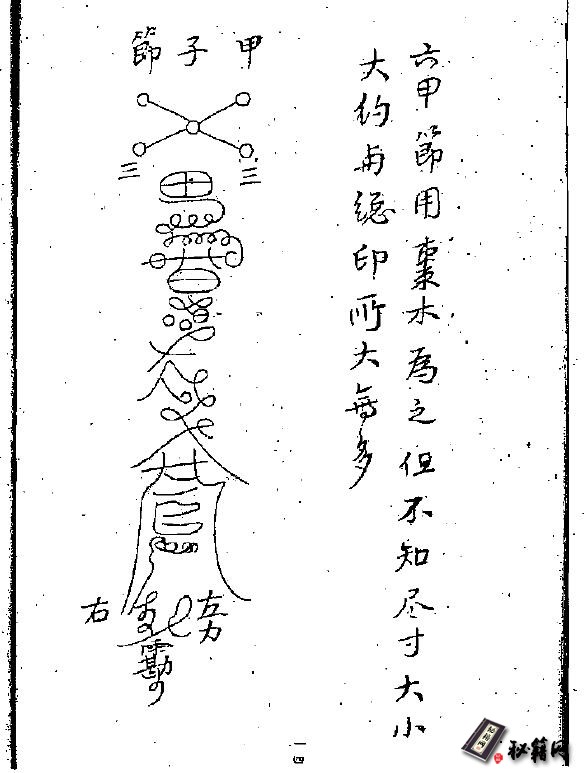 六甲節用棗木為之但不知尽寸大小
大約与總印所大無多
甲子節
三
三
右
左力
一四
秘籍网